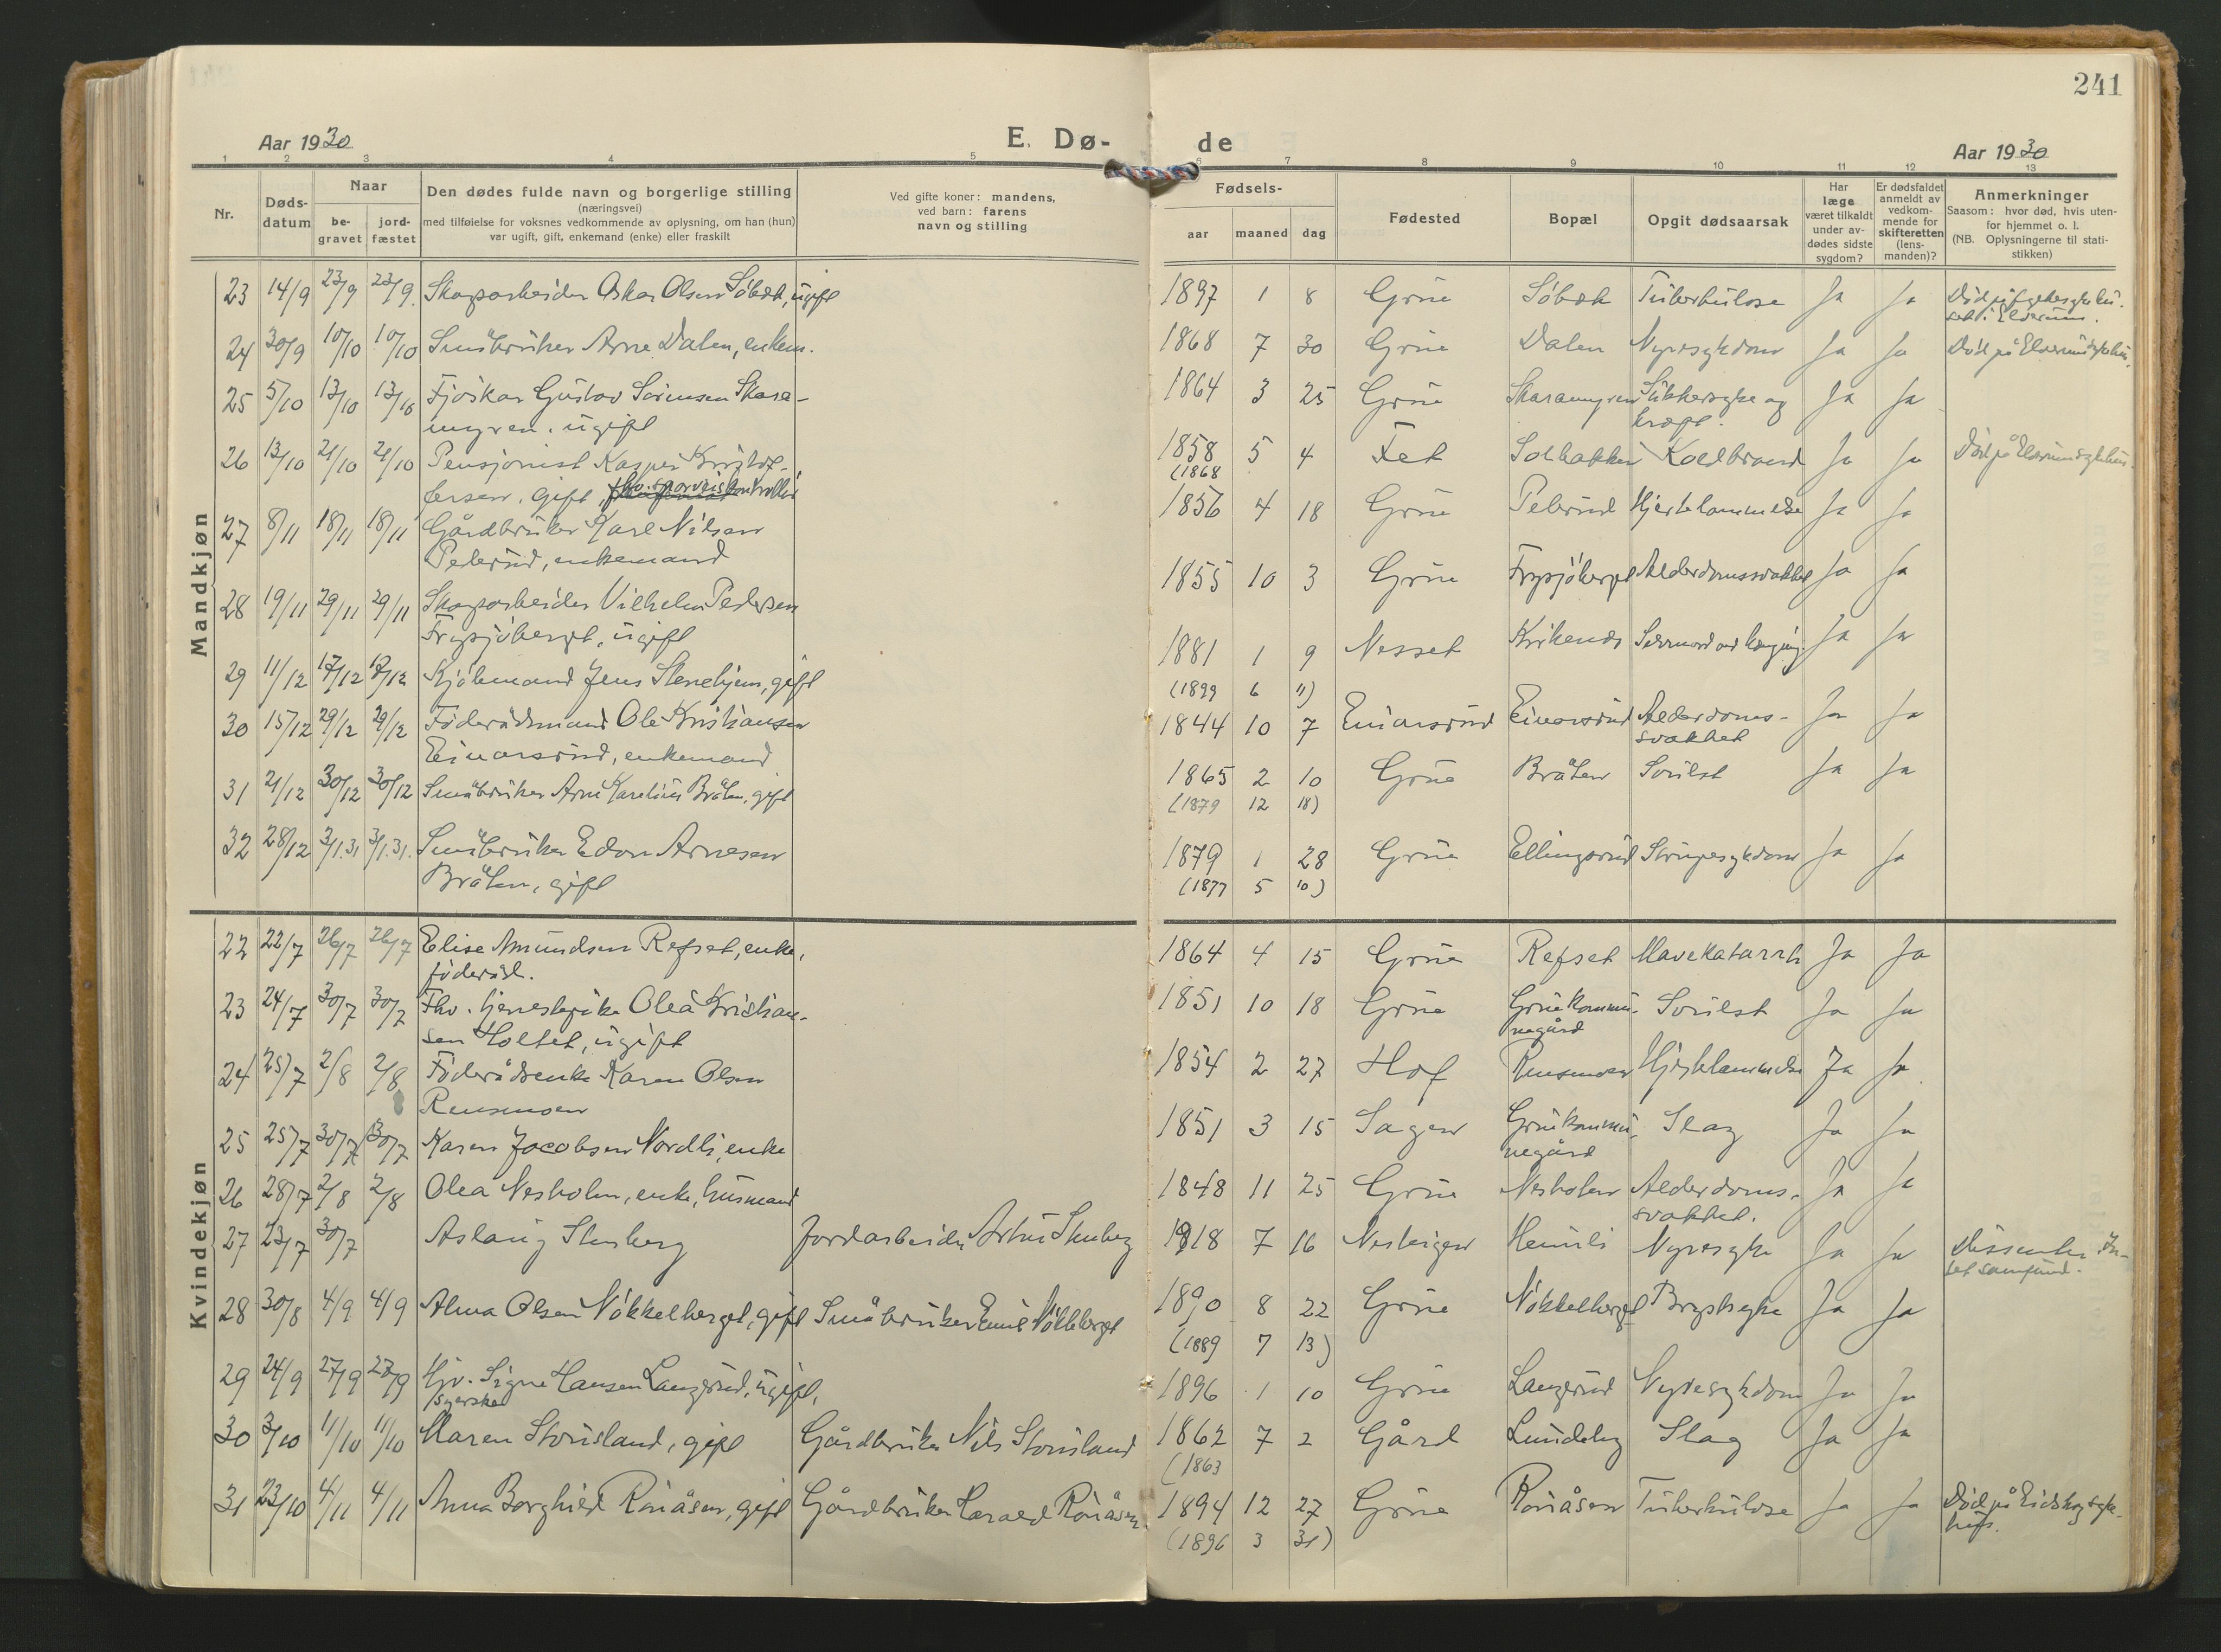 241
Aar 1930
E. Dø-
de
Aar 1930
1 2 3 4 5 6 7 8 9 10 11 12 13
Nr.
Døds-
datum
Naar
be-
gravet
jord-
fæstet
Den dødes fulde navn og borgerlige stilling
(næringsvei)
med tilføielse for voksnes vedkommende av oplysning, om han (hun)
var ugift, gift, enkemand (enke) eller fraskilt
Ved gifte koner: mandens,
ved barn: farens
navn og stilling
Fødsels-
aar maaned dag
Fødested
Bopæl
Opgit dødsaarsak
Har
læge
været tilkaldt
under av-
dødes sidste
sygdom?
Er dødsfaldet
anmeldt av
vedkom-
mende for
skifteretten
(lens-
manden)?
Anmerkninger
Saasom: hvor død, hvis uten-
for hjemmet o. l.
(NB. Oplysningerne til stati-
stikken)
Mandkjøn
23 14/9 23/9 23/9. Skogsarbeider Oskar Olsen Söbæk, ugift 1897 1 8 Grue Söbæk Tuberkulose Ja Ja
24 30/9 10/10 10/10 Småbruker Arne Dalen, enkem. 1868 7 30 Grue Dalen Nyresykdom Ja Ja Död på Elverum sykehus.
25 5/10 13/10 13/10 Fjöskar Gustav Sörensen Skara- 1864 3 25 Grue Skaramyren Sukkersyke og Ja Ja
myren. ugift kræft.
26 13/10 21/10 21/10 Pensjonist Kasper Kristof- 1858 5 4 Fet Solbakken Koldbrand Ja Ja Död på Elverum sykehus.
fersen, gift, (1868
27 8/11 18/11 18/11 Gårdbruker Karl Nilsen 1856 4 18 Grue Pelerud Hjertelammelse Ja Ja
Pelerud, enkemand
28 19/11 29/11 29/11 Skogsarbeider Vilhelm Pedersen 1855 10 3 Grue Frysjöberget Alderdomssvakhet Ja Ja
Frysjöberget, ugift
29 11/12 17/12 17/12 Kjöbmand Jens Stenehjem, gift 1881 1 9 Nesset Selvmord ved hængning Ja Ja
(1899 6 11)
30 15/12 29/12 29/12 Föderådsmand Ole Kristiansen 1844 10 7 Einarsrud Einarsrud Alderdoms- Ja Ja
Einarsrud, enkemand svakhet
31 21/12 30/12 30/12 Småbruker Arne Karelius Bråten, gift 1865 2 10 Grue Bråten Svulst Ja Ja
(1879 12 18)
32 28/12 3/1.31 3/1.31. Småbruker Edon Arnesen 1879 1 28 Grue Ellingsrud Strupesykdom Ja Ja
Bråten, gift (1877 5 10)
Kvindekjøn
22 22/7 26/7 26/7 Elise Amundsen Refset, enke, 1864 4 15 Grue Refset Mavekatarrh Ja Ja
föderåd.
23 24/7 30/7 30/7 Fhv. tjenestepike Olea Kristian- 1851 10 18 Grue Grue kommu- Svulst Ja Ja
sen Holtet, ugift negård
24 25/7 2/8 2/8 Föderådsenke Karen Olsen 1854 2 27 Hof Rensmoen Hjertelammelse Ja Ja
Rensmoen
25 25/7 30/7 30/7 Karen Jacobsen Nordli, enke 1851 3 15 Sagen Grue kommu- Slag Ja Ja
negård
26 28/7 2/8 2/8 Olea Nesholen, enke, husmand 1848 11 25 Grue Nesholen Alderdoms- Ja Ja
svakhet.
27 23/7 30/7 Aslaug Stenberg Jordarbeider Artur Stenberg 1918 7 16 Heimli Nyresyke Ja Ja Dissenter.
28 30/8 4/9 4/9 Alma Olsen Nökkelberget, gift Småbruker Emil Nökkelberget 1890 8 22 Grue Nökkelberget Brystsyke Ja Ja
(1889 7 13)
29 24/9 27/9 27/9 Hjv. Signe Hansen Langerud, ugift, 1896 1 10 Grue Langerud Nyresykdom Ja Ja
syerske
30 3/10 11/10 11/10 Maren Storusland, gift Gårdbruker Nils Storusland 1862 7 2 Gård Lundeby Slag Ja Ja
(1863
31 23/10 4/11 4/11 Anna Borghild Rönåsen, gift Gårdbruker Harald Rönåsen 1894 12 27 Grue Rönåsen Tuberkulose Ja Ja Död på Eidskog syke-
hus.
(1896 3 31)